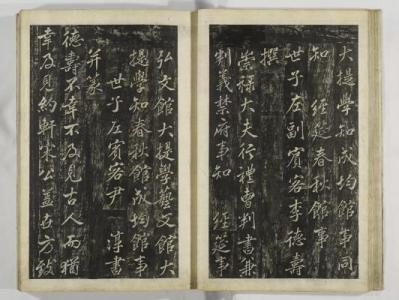 大提學知成均館事同
知 經筵春秋館事
世子左副賓客李德壽
撰
崇祿大夫行禮曹判書兼
判義禁府事知 經筵事
弘文館大提學藝文館大
提學知春秋館成均館事
世子左賓客尹 淳書
并篆
德壽不幸不及見古人而猶
幸及見約軒宋公蓋在方致